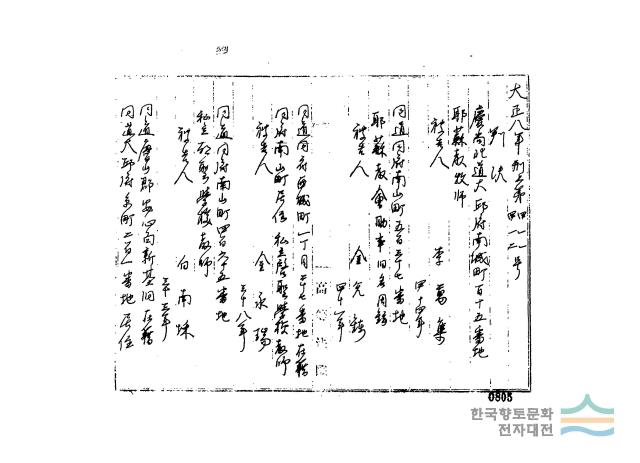 大正八年刑上第四一二号
判決
慶尚北道大邱府南城町百十五番地
耶蘇教牧師
被告人 李萬集
四十四年
同道同府南山町五百三十七番地
耶蘇教會助事
被告人 金兌鍊
四十一年
高等法院
同道同府西城町一丁目三十七番地在籍
同府南山町居住 私立啓聖學校教師
被告人 金永瑞
三十八年
同道同府南山町四百六十五番地
私立啓聖學校教師
被告人 白南埰
三十三年
同道慶山郡安心面新基洞在籍
同道大邱府
番地居住
0805
한국향토문화
전자대전